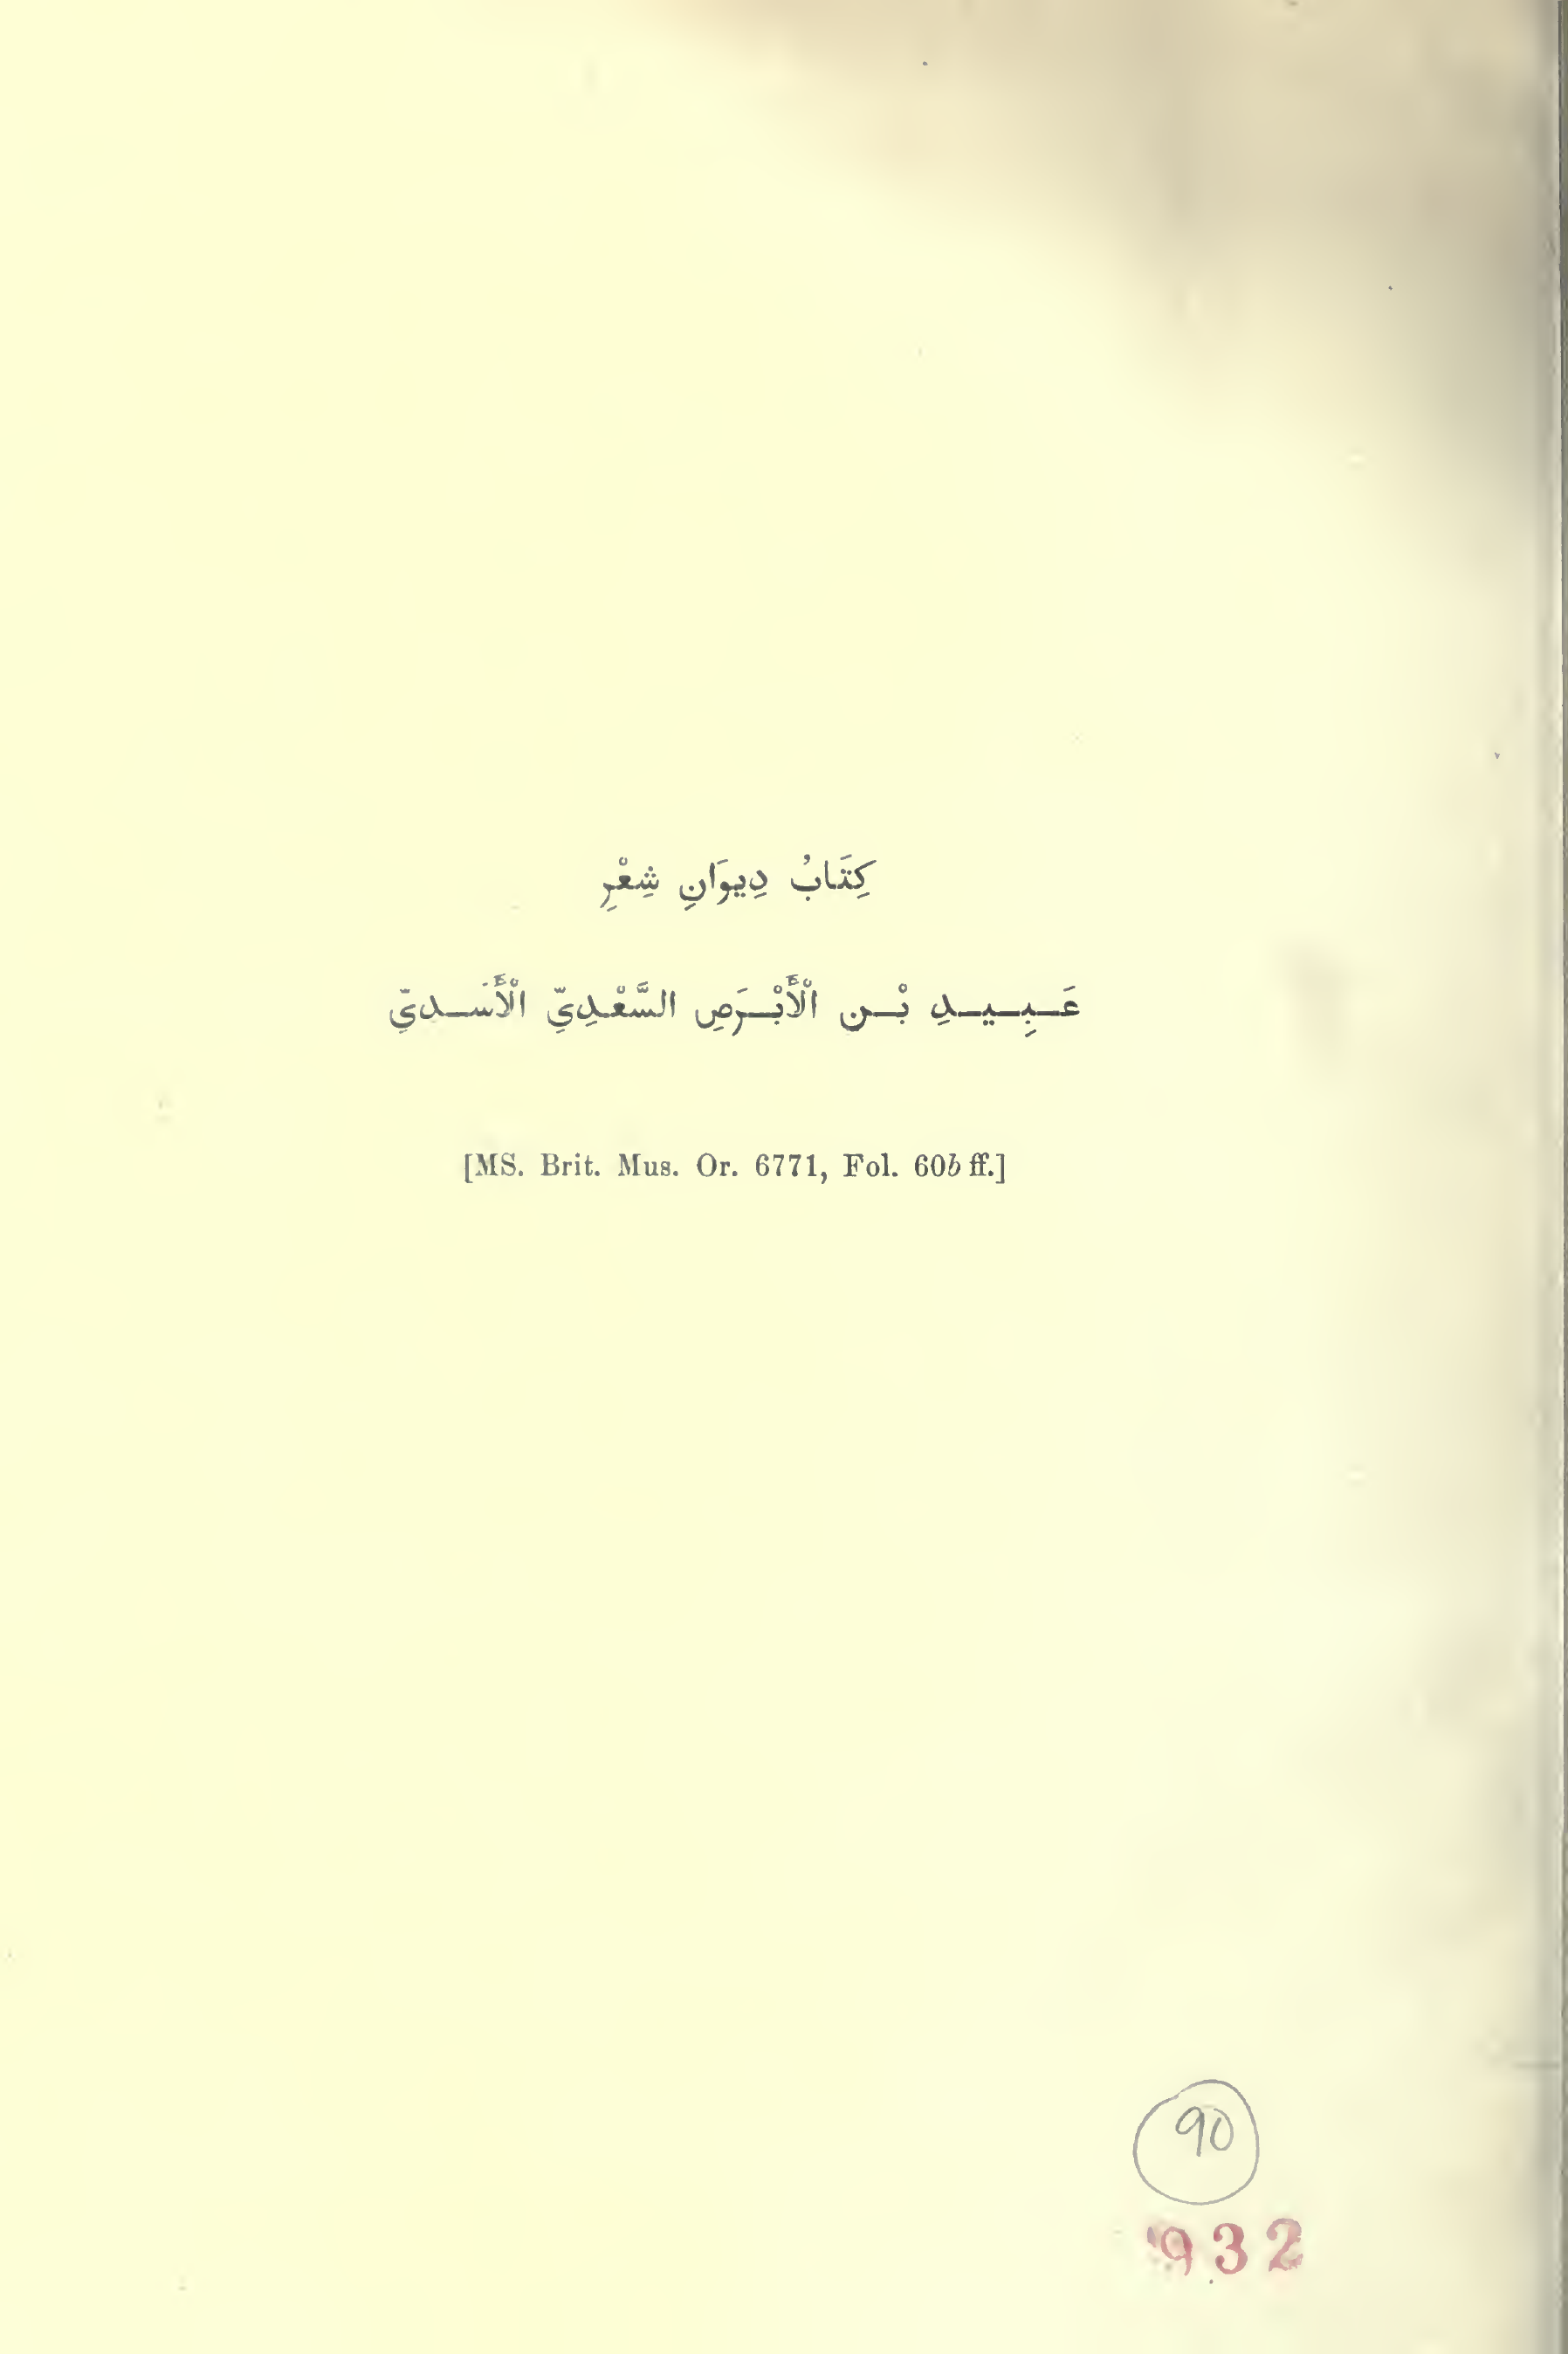 كِتَابُ دِيوَانِ شِعْرِ
عَـبِـيـدِ بْـن الْأَبْـرَصِ السَّعْدِيِّ الْأَسَـديِّ
[MS. Brit. Mus. Or. 6771, Fol. 60b ff.]
90
932